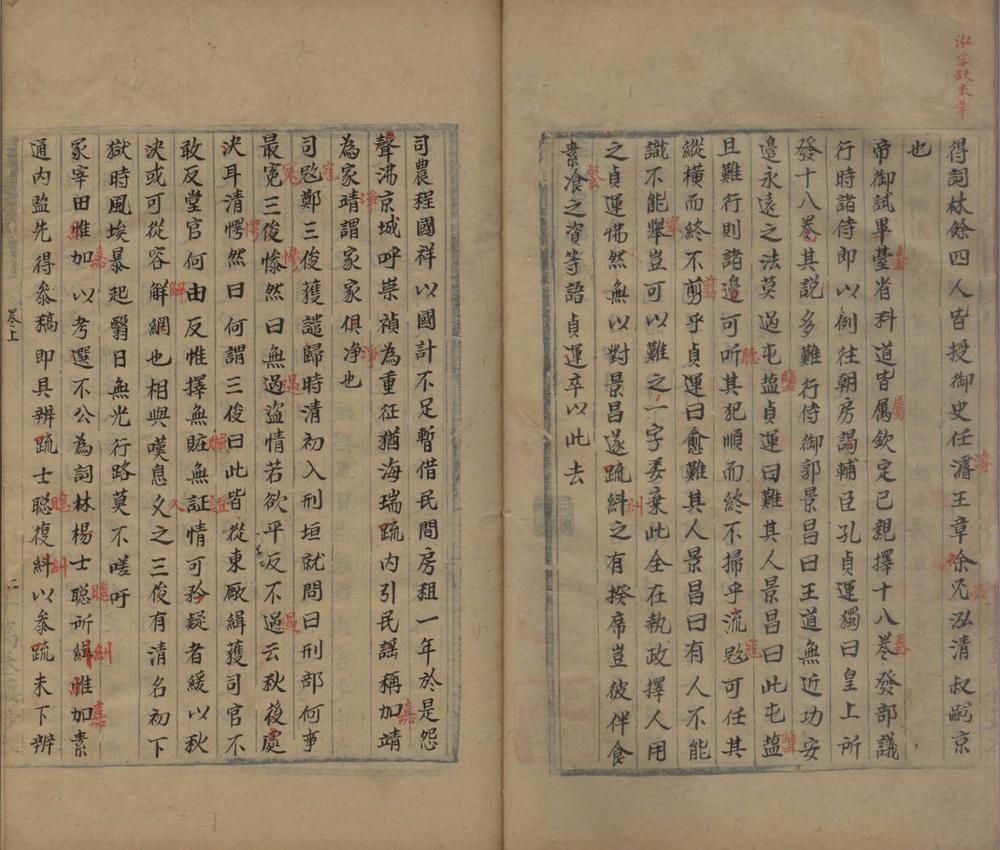 泓字缺末筆
得詞林餘四人皆授御史任濬王章徐凡泓清叔嗣京
也
帝御試畢臺省科道皆属欽定已親擇十八卷發部議
行時諸侍即以例往朝房謁輔臣孔貞運獨曰皇上所
發十八卷其説多難行侍御郭景昌曰王道無近功安
邊永遠之法莫過屯盐貞運曰難其人景昌曰此屯盐
且難行則諸邊可听其犯順而終不掃乎流㓂可任其
縱橫而終不剪乎貞運曰愈難其人景昌曰有人不能
識不能舉豈可以難之一字委棄此全在執政擇人用
之貞運怫然無以對景昌遂疏糾之有揆席豈彼伴食
素飡之資等語貞運卒以此去
司農程國祥以國計不足暫借民間房租一年於是怨
聲沸京城呼崇禎為重征猶海瑞疏内引民謡稱加靖
為家靖謂家家俱净也
司㓂鄭三俊獲譴歸時清初入刑垣就問曰刑部何事
最寃三俊惨然曰無過盜情若欲平反不過云秋後處
决耳清愕然曰何謂三俊曰此皆從東厰緝獲司官不
敢反堂官何由反惟擇無賍無証情可矜疑者緩以秋
决或可從容解網也相與嘆息久之三俊有清名初下
獄時風埃暴起翳日無光行路莫不嗟吁
冢宰田惟加以考選不公為詞林楊士聰所緝惟加素
通内監先得叅稿即具辨疏士聪復糾以叅疏未下辨
卷上